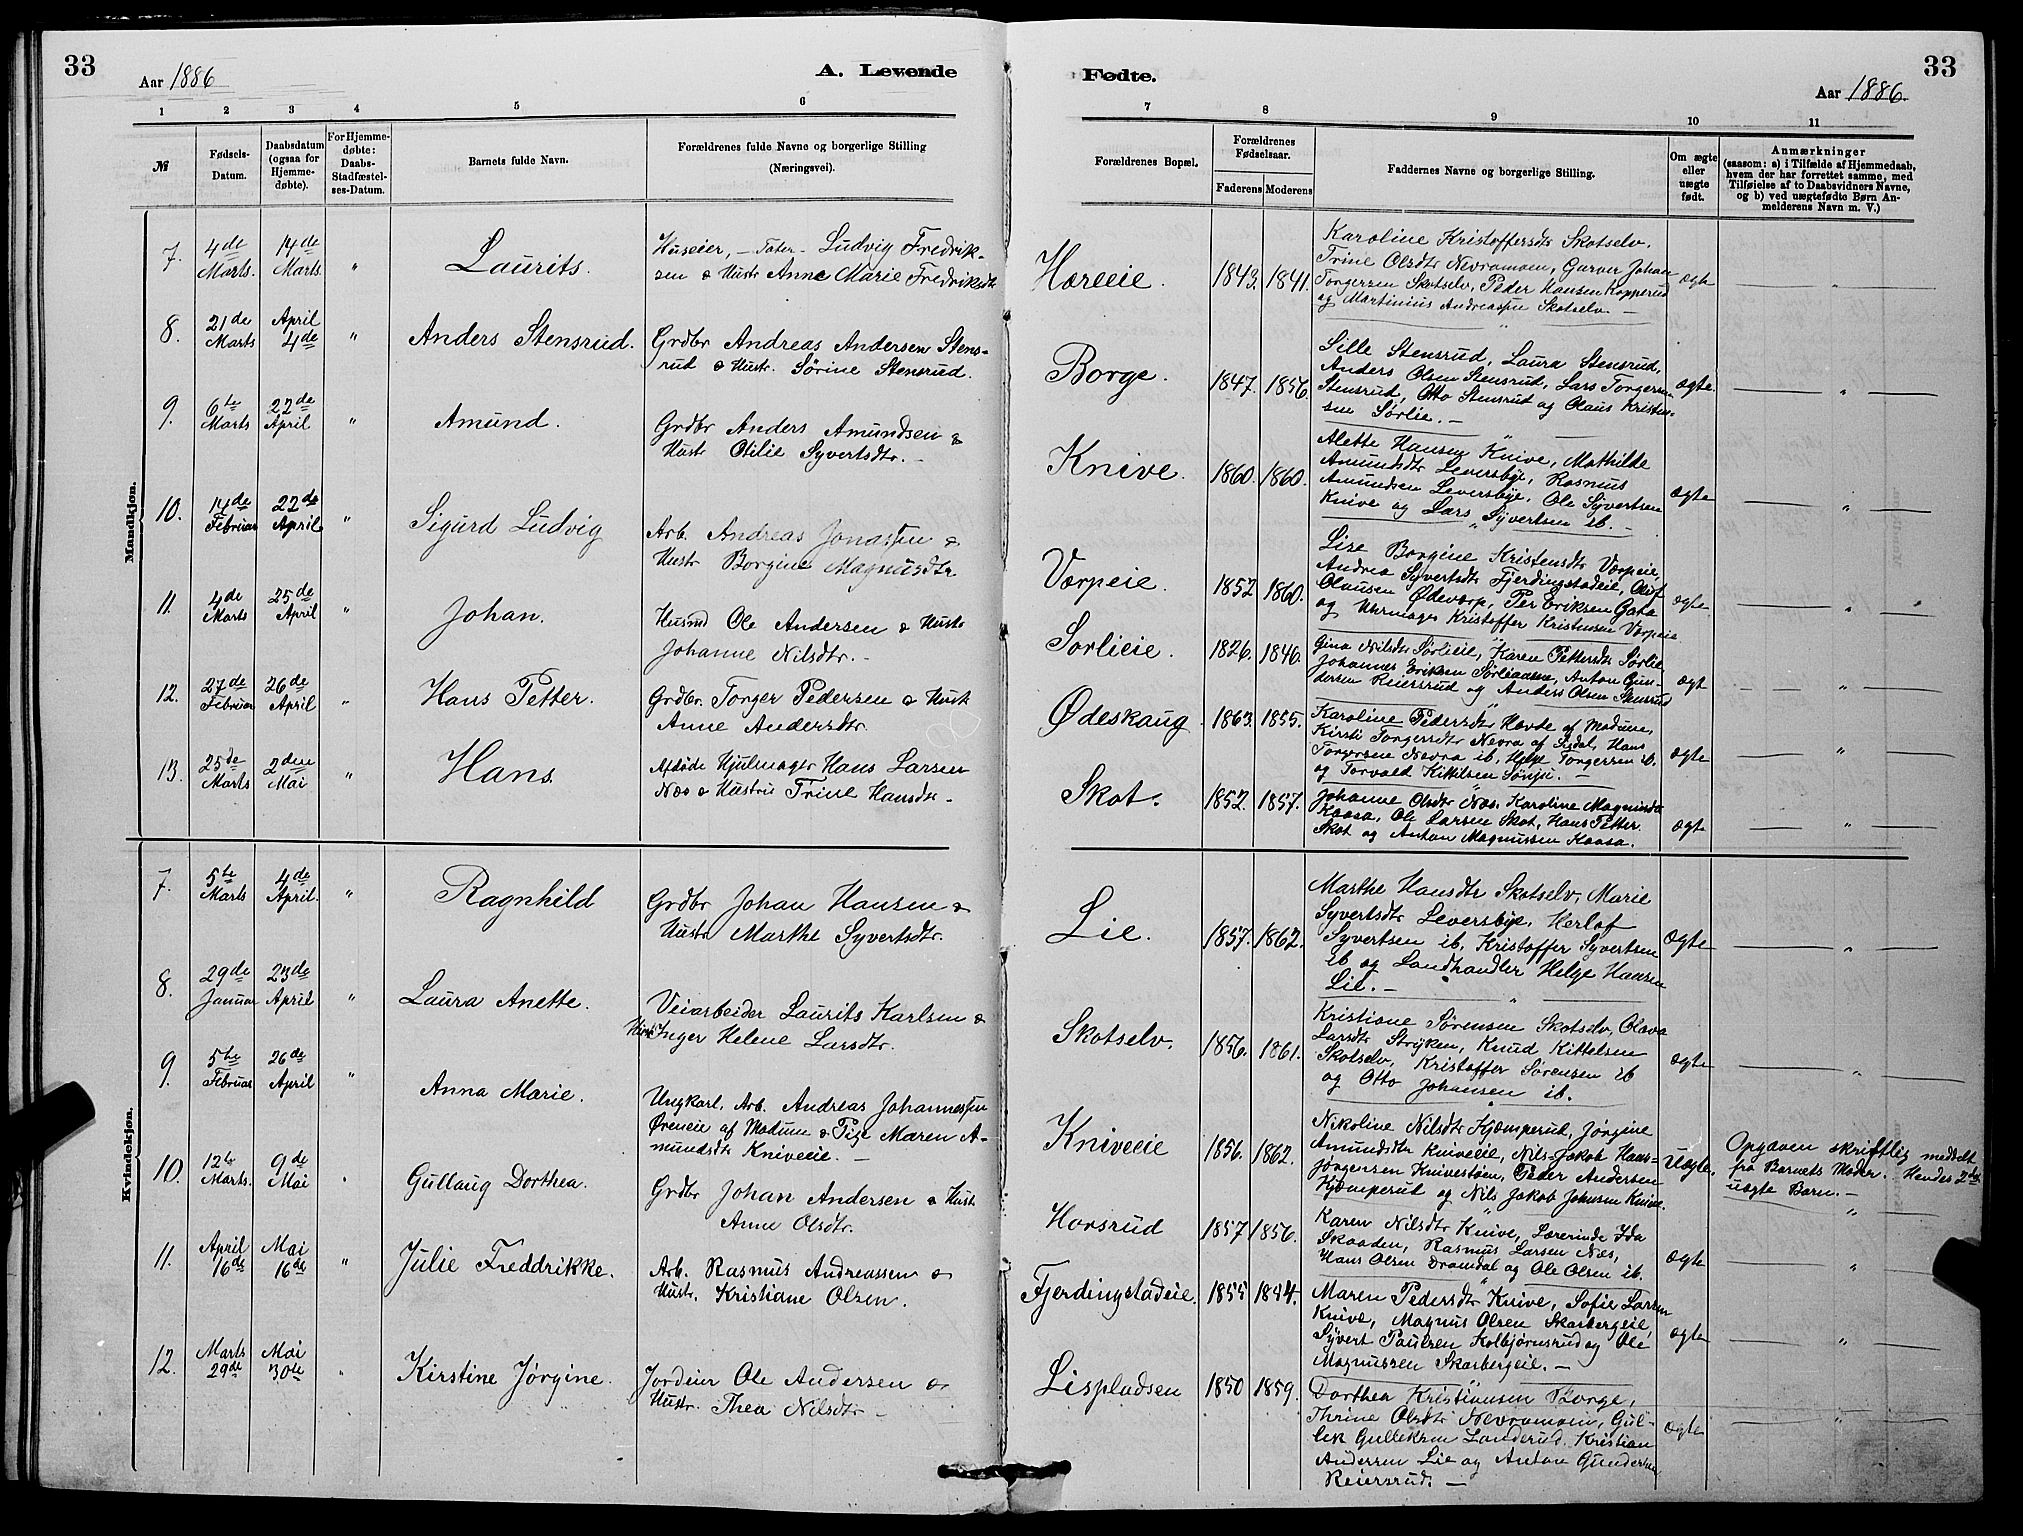 33
Aar 1886
A. Levende
1
2
3
4
5
6
№
Fødsels-
Datum.
Daabsdatum
(ogsaa for
Hjemme-
døbte).
For Hjemme-
døbte:
Daabs-
Stadfæstel-
ses-Datum.
Barnets fulde Navn.
Forældrenes fulde Navne og borgerlige Stilling
(Næringsvei).
Mandkjøn.
7.
4de
Marts.
14de
Marts
"
Laurits.
Huseier, - Tater - Ludvig Fredrik-
sen & Hustr Anne Marie Fredriksdtr
8.
21de
Marts
April
4de
"
Anders Stensrud.
Grdbr Andreas Andersen Stens-
rud & Hustr. Sørine Stensrud.
9.
6te
Marts
22de
April
"
Amund.
Grdbr Anders Amundsen &
Hustr Otilie Syvertsdtr. -
10.
14de
Februar
22de
April
"
Sigurd Ludvig
Arb. Andreas Jonassen &
Hustr Borgine Magnusdtr
11.
4de
Marts
25de
April
"
Johan.
Husmd Ole Andersen & Hustr
Johanne Nilsdtr. -
12.
27de
Februar
26de
April
"
Hans Petter.
Grdbr. Torger Pedersen & Hust
Anne Andersdtr.
13.
25de
Marts
2den
Mai
"
Hans
Afdøde Hjulmager Hans Larsen
Næs & Hustru Trine Hansdtr -
Kvindekjøn.
7.
5te
Marts
4de
April.
"
Ragnhild
Grdbr Johan Hansen &
Hustr Marthe Syvertsdtr.
8.
29de
Januar
23de
April
"
Laura Anette.
Veiarbeider Laurits Karlsen &
Hustr Inger Helene Larsdtr.
9.
5te
Februar
26de
April
"
Anna Marie.
Ungkarl, Arb. Andreas Johannessen
Øreneie af Modum & Pige Maren A-
mundsdtr Kniveeie. -
10.
12te
Marts.
9de
Mai
"
Gullaug Dorthea.
Grdbr Johan Andersen & Hust
Anne Olsdtr.
11.
April
16de
Mai
16de
"
Julie Freddrikke.
Arb. Rasmus Andreassen &
Hustr. Kristiane Olsen.
12.
Marts
29de
Mai
30te
"
Kirstine Jørgine.
Jordeier Ole Andersen &
Hustr. Thea Nilsdtr -
Fødte.
33
Aar 1886.
7
8
9
10
11
Forældrenes Bopæl.
Forældrenes
Fødselsaar.
Faderens
Moderens
Faddernes Navne og borgerlige Stilling.
Om ægte
eller
uægte
født.
Anmærkninger
(saasom: a) i Tilfælde af Hjemmedaab,
hvem der har forrettet samme, med
Tilføielse af to Daabsvidners Navne,
og b) ved uægtefødte Børn An-
melderens Navn m. V.)
Horeeie.
1843.
1841.
Karoline Kristoffersdtr Skotselv.
Trine Olsdtr Nevramoen, Garver Johan
Torgersen Skotselv, Peder Hansen Kopperud
og Martinius Andreassen Skotselv. -
ægte
"
Borge.
1847.
1856.
Sille Stensrud, Laura Stensrud,
Anders Olsen Stensrud, Lars Torgersen
Stensrud, Otto Stensrud og Olaus Kristen-
sen Sørlie. -
ægte
"
Knive.
1860.
1860.
Alette Hansen Knive, Mathilde
Amundsdtr Leversbye, Rasmus
Amundsen Leversbye, Ole Syvertsen
Knive og Lars Syvertsen ib. -
ægte
"
Vorpeie.
1852
1860.
Lise Borgine Kristensdtr Vorpeie,
Andrea Syvertsdtr Fjerdingstadeie, Olof
Olausen Ødevorp, Per Eriksen Gata
og Uhrmager Kristoffer Kristensen Vorpeie
ægte
"
Sorlieie.
1826.
1846.
Gina Nilsdtr Sørlieie, Karen Pettersdtr Sørlie
Johannes Eriksen Sørlieaasen, Anton Gun-
dersen Reiersrud og Anders Olsen Stensrud
ægt
"
Ødeskaug
1863.
1855.
Karoline Pedersdtr Hovde af Modum,
Kirsti Torgersdtr Nevra af Sigdal, Hans
Torgersen Nevra ib, Helge Torgersen ib.
og Torvald Kittilsen Sønju. -
ægte
"
Skot.
1852.
1857.
Johanne Olsdtr Næs. Karoline Magnusdtr
Kaasa, Ole Larsen Skot, Hans Petter
Skot og Anton Magnussen Kaasa.
ægte
"
Lie.
1857.
1862.
Marthe Hansdtr Skotselv, Marie
Syvertsdtr Leversbye, Herlof
Syvertsen ib, Kristoffer Syvertsen
ib og Landhandler Helge Hansen
Lie. -
ægte
"
Skotselv.
1856.
1861.
Kristiane Sørensen Skotselv, Olava
Larsdtr Stryken, Knud Kittelsen
Skotselv, Kristoffer Sørensen ib
og Otto Johansen ib.
ægte
"
Kniveeie
1856.
1862.
Nikoline Nilsdtr Kjæmperud, Jørgine
Amundsdtr Kniveeie, Nils Jakob Hans-
Jørgensen Knivestøen, Peder Andersen
Kjæmperud og Nils Jakob Johnsen Knive.
Uægte.
Opgaven skriftlig meddelt
fra Barnets Moder. Hendes 2det
uægte Barn. -
Horsrud
1857
1856.
Karen Nilsdtr Knive, Lærerinde Ida
Skaaden, Rasmus Larsen Næs,
Hans Olsen Dramdal og Ole Olsen ib.
ægte
"
Fjerdingstadeie.
1855
1854.
Maren Pedersdtr Knive, Sofie Larsen
Knive, Magnus Olsen Skarbergeie,
Syvert Paulsen Kolbjørnsrud og Ole
Magnussen Skarbergeie. -
ægte
"
Lispladsen
1850
1859.
Dorthea Kristiansen Borge,
Thrine Olsdtr Nevramoen, Gul-
lek Gulleksen Landerud. Kristian
Andersen Lie og Anton Gundersen
Reiersrud. -
ægte
"